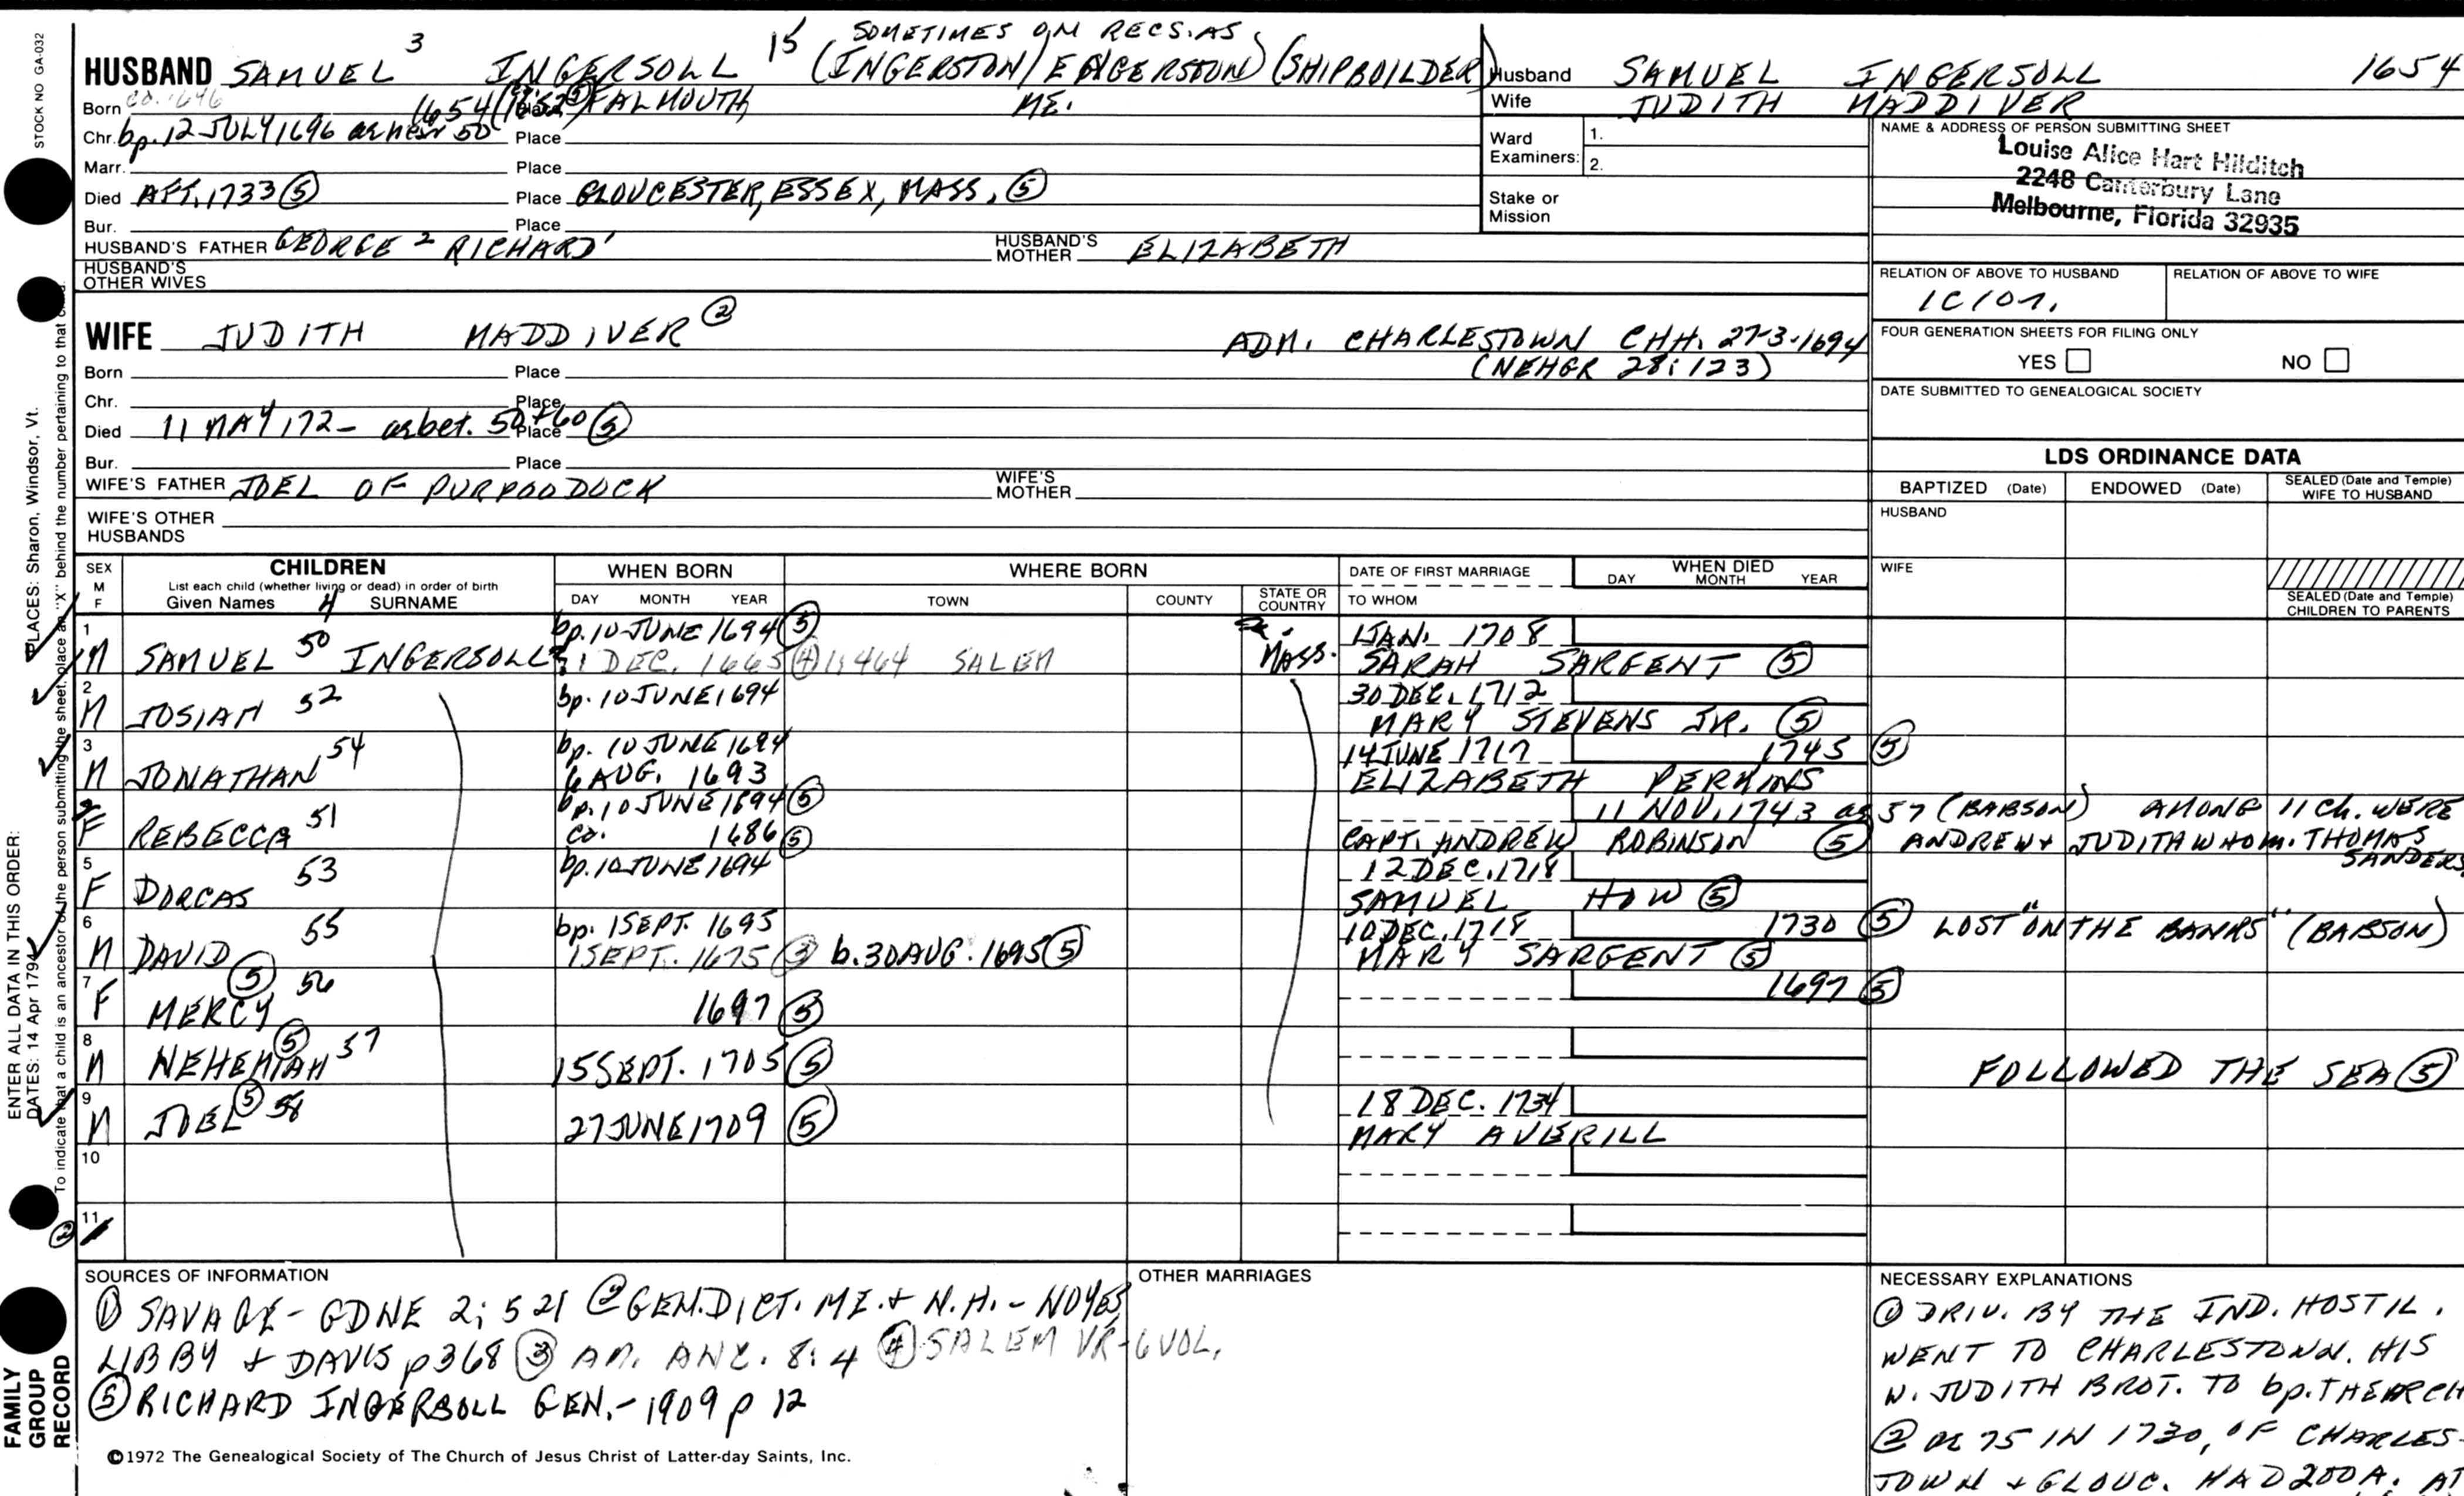 STOCK NO GA-032
SOMETIMES ON RECS. AS
HUSBAND SAMUEL 3 INGERSOLL 15 (INGERSTON/ENGERSTON) (SHIPBUILDER)
Born ca. 1646 1654 Place FALMOUTH ME.
Chr. bp. 12 JULY 1696 ae near 50 Place
Marr. Place
Died AFT. 1733 (5) Place GLOUCESTER, ESSEX, MASS. (5)
Bur. Place
HUSBAND'S FATHER GEORGE 2 RICHARD 1 HUSBAND'S MOTHER ELIZABETH
HUSBAND'S OTHER WIVES
Husband SAMUEL INGERSOLL 1654
Wife JUDITH MADDIVER
Ward Examiners: 1.
2.
Stake or Mission
NAME & ADDRESS OF PERSON SUBMITTING SHEET
Louise Alice Hart Hilditch
2248 Canterbury Lane
Melbourne, Florida 32935
RELATION OF ABOVE TO HUSBAND RELATION OF ABOVE TO WIFE
FOUR GENERATION SHEETS FOR FILING ONLY
YES NO
DATE SUBMITTED TO GENEALOGICAL SOCIETY
WIFE JUDITH MADDIVER (2) ADM. CHARLESTOWN CHH. 27-3-1694
(NEHGR 28:123)
Born Place
Chr. Place
Died 11 MAY 172- ae bet. 50 + 60 (5) Place
Bur. Place
WIFE'S FATHER JOEL OF PURPOODUCK WIFE'S MOTHER
WIFE'S OTHER HUSBANDS
LDS ORDINANCE DATA
BAPTIZED (Date) ENDOWED (Date) SEALED (Date and Temple) WIFE TO HUSBAND
HUSBAND
WIFE
SEALED (Date and Temple) CHILDREN TO PARENTS
SEX M F CHILDREN
List each child (whether living or dead) in order of birth
Given Names 4 SURNAME
WHEN BORN DAY MONTH YEAR
WHERE BORN TOWN COUNTY STATE OR COUNTRY
DATE OF FIRST MARRIAGE TO WHOM
WHEN DIED DAY MONTH YEAR
1 bp. 10 JUNE 1694 (5) 1 JAN. 1708
M SAMUEL 50 INGERSOLL 1 DEC. 1665 (4) 1:464 SALEM MASS. SARAH SARGENT (5)
2 bp. 10 JUNE 1694 30 DEC. 1712
M JOSIAH 52 MARY STEVENS JR. (5)
3 bp. 10 JUNE 1694 14 JUNE 1717 1745 (5)
M JONATHAN 54 6 AUG. 1693 ELIZABETH PERKINS
bp. 10 JUNE 1694 (5) 11 NOV. 1743 ae 57 (BABSON) AMONG 11 Ch. WERE
F REBECCA 51 ca. 1686 (5) CAPT. ANDREW ROBINSON (5) ANDREW + JUDITH WHO m. THOMAS SANDERS
5 bp. 10 JUNE 1694 12 DEC. 1718
F DORCAS 53 SAMUEL HOW (5)
6 bp. 1 SEPT. 1695 10 DEC. 1718 1730 (5) LOST "ON THE BANKS" (BABSON)
M DAVID 55 1 SEPT. 1675 (3) b. 30 AUG. 1695 (5) MARY SARGENT (5)
7 F MERCY (5) 56 1697 (5) 1697 (5)
8 M NEHEMIAH (5) 57 15 SEPT. 1705 (5) FOLLOWED THE SEA (5)
9 18 DEC. 1734
M JOEL (5) 58 27 JUNE 1709 (5) MARY AVERILL
10
11
SOURCES OF INFORMATION
(1) SAVAGE - GDNE 2:521 (2) GEN. DICT. ME. + N.H. - NOYES
LIBBY + DAVIS p 368 (3) AM. ANC. 8:4 (4) SALEM VR - 6 VOL.
(5) RICHARD INGERSOLL GEN. - 1909 p 12
©1972 The Genealogical Society of The Church of Jesus Christ of Latter-day Saints, Inc.
OTHER MARRIAGES
NECESSARY EXPLANATIONS
(1) DRIV. BY THE IND. HOSTIL.
WENT TO CHARLESTOWN. HIS
W. JUDITH BROT. TO bp. THEIR CH
(2) ae 75 IN 1730, OF CHARLES-
TOWN + GLOUC. HAD 200 A. AT
ENTER ALL DATA IN THIS ORDER:
PLACES: Sharon, Windsor, Vt.
DATES: 14 Apr 1794
To indicate that a child is an ancestor of the person submitting the sheet, place an "X" behind the number pertaining to that child.
(2)
FAMILY
GROUP
RECORD